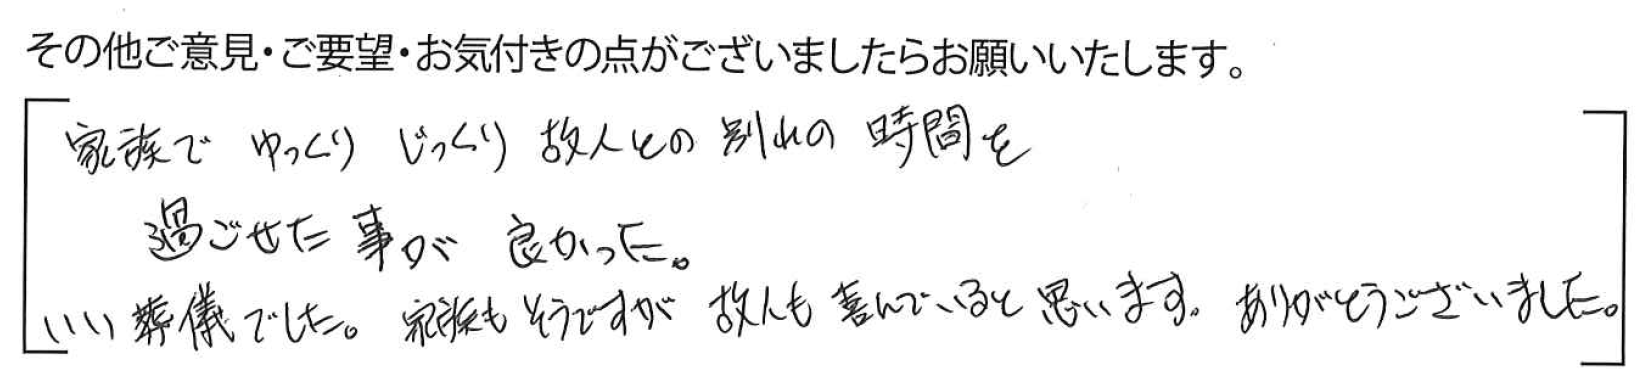 その他ご意見・ご要望・お気付きの点がございましたらお願いいたします。
家族で ゆっくり じっくり 故人との 別れの 時間を
過ごせた 事が 良かった。
いい葬儀でした。 家族もそうですが 故人も 喜んでいると 思います。 ありがとうございました。